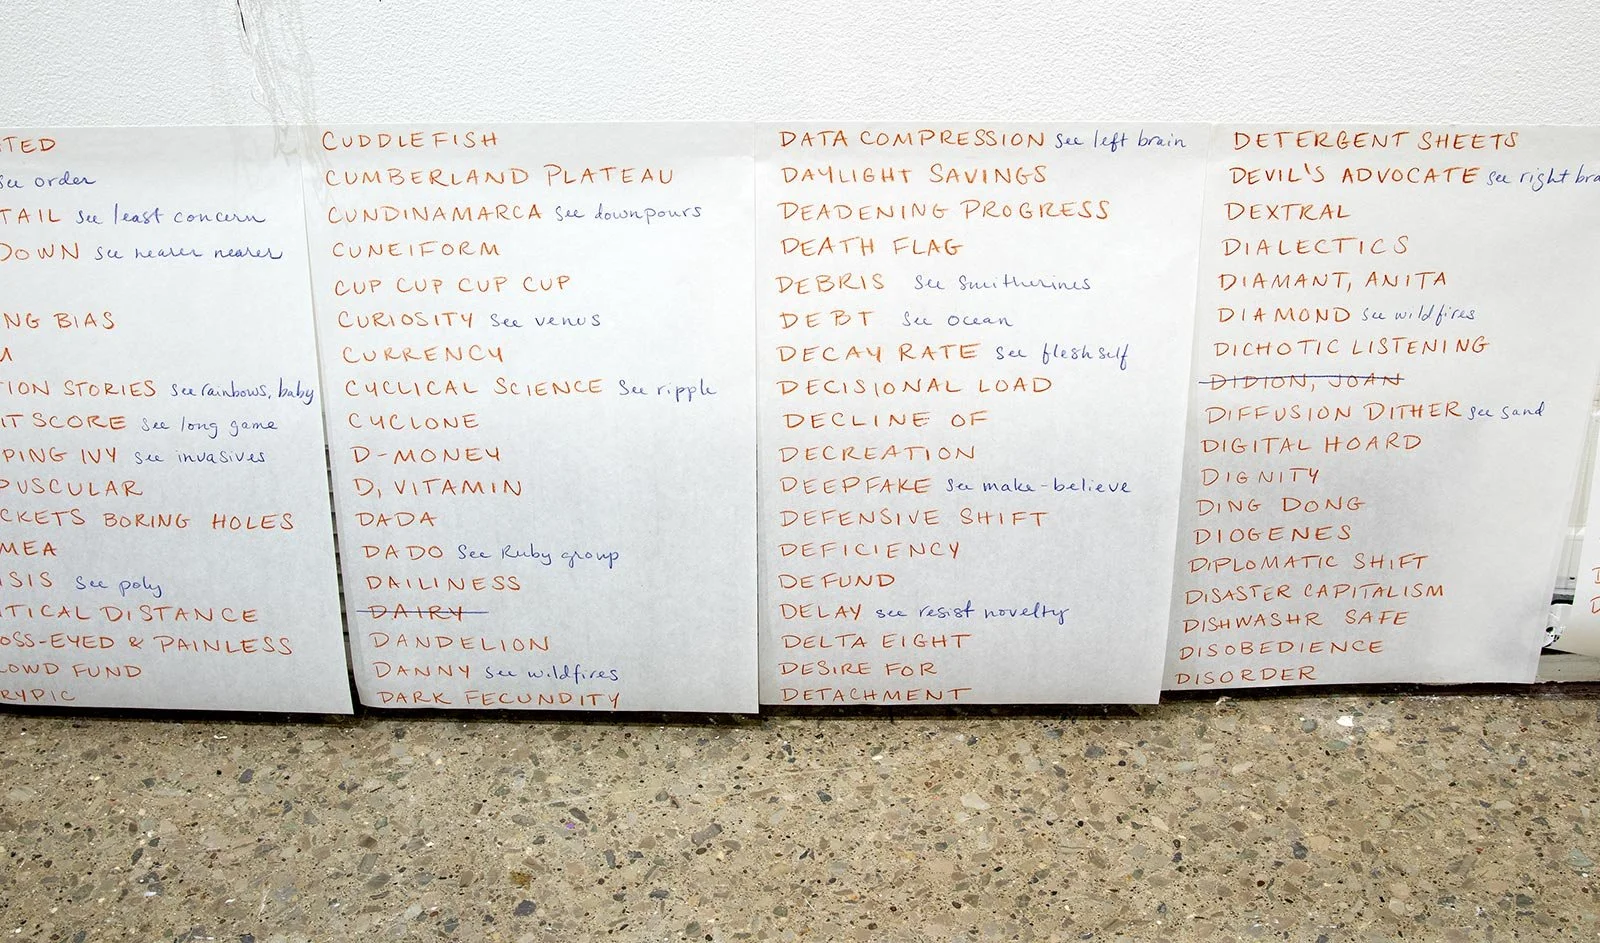 TED
see order
TAIL see least concern
DOWN see nearer nearer
NG BIAS
M
TION STORIES see rainbows, baby
IT SCORE see long game
PING IVY see invasives
PUSCULAR
CKETS BORING HOLES
MEA
ISIS see poly
ITICAL DISTANCE
OSS-EYED & PAINLESS
LOWD FUND
RYPIC
CUDDLEFISH
CUMBERLAND PLATEAU
CUNDINAMARCA see downpours
CUNEIFORM
CUP CUP CUP CUP
CURIOSITY see venus
CURRENCY
CYCLICAL SCIENCE see ripple
CYCLONE
D-MONEY
D, VITAMIN
DADA
DADO see Ruby group
DAILINESS
DAIRY
DANDELION
DANNY see wildfires
DARK FECUNDITY
DATA COMPRESSION see left brain
DAYLIGHT SAVINGS
DEADENING PROGRESS
DEATH FLAG
DEBRIS see Smitherines
DEBT see ocean
DECAY RATE see flesh self
DECISIONAL LOAD
DECLINE OF
DECREATION
DEEPFAKE see make-believe
DEFENSIVE SHIFT
DEFICIENCY
DEFUND
DELAY see resist novelty
DELTA EIGHT
DESIRE FOR
DETACHMENT
DETERGENT SHEETS
DEVIL'S ADVOCATE see right bra
DEXTRAL
DIALECTICS
DIAMANT, ANITA
DIAMOND see wildfires
DICHOTIC LISTENING
DIDION, JOAN
DIFFUSION DITHER see sand
DIGITAL HOARD
DIGNITY
DING DONG
DIOGENES
DIPLOMATIC SHIFT
DISASTER CAPITALISM
DISHWASHR SAFE
DISOBEDIENCE
DISORDER